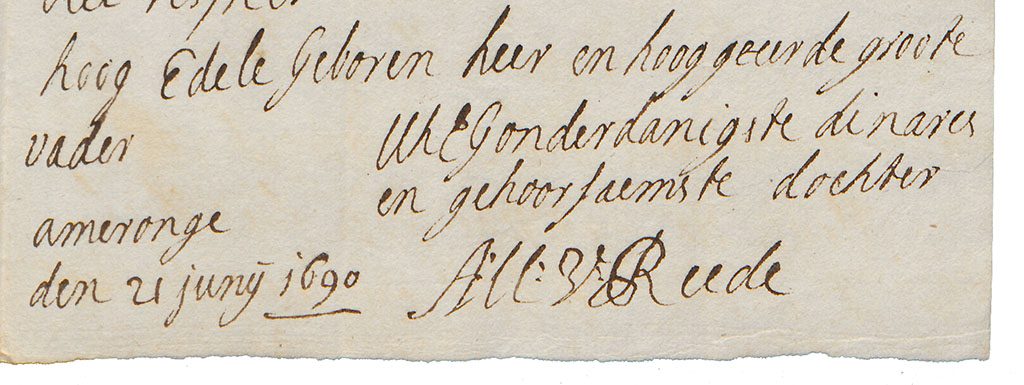 hoog Edele Geboren heer en hooggeerde groote
vader UhEG onderdanigste dinares
en gehoorsaemste dochter
amerongen
den 21 junij 1690 V: Reede